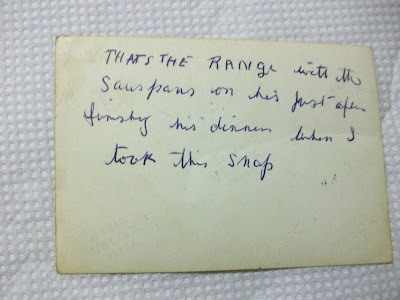 THATS THE RANGE with the
Sauspans on his just after
finishg his dinner when I
took this snap